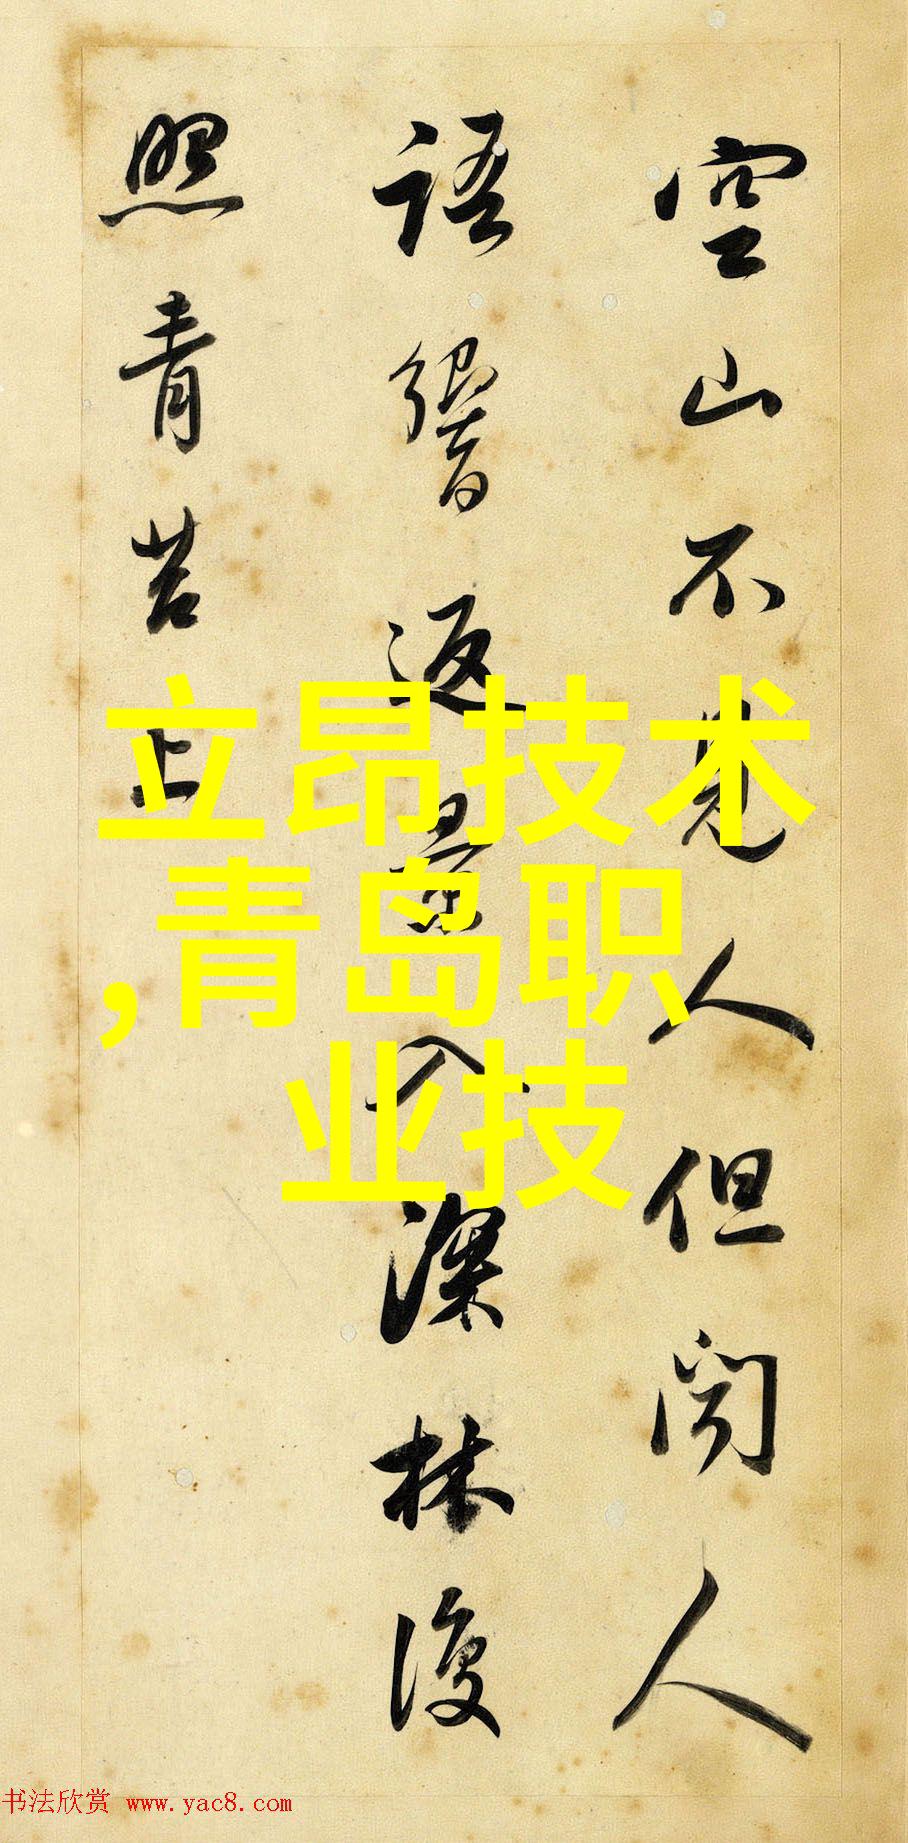 空山不見人但聞人
語響返景入深林復
照青苔上
立昂技术
,青岛职
业技
书法欣赏 www.yac8.com